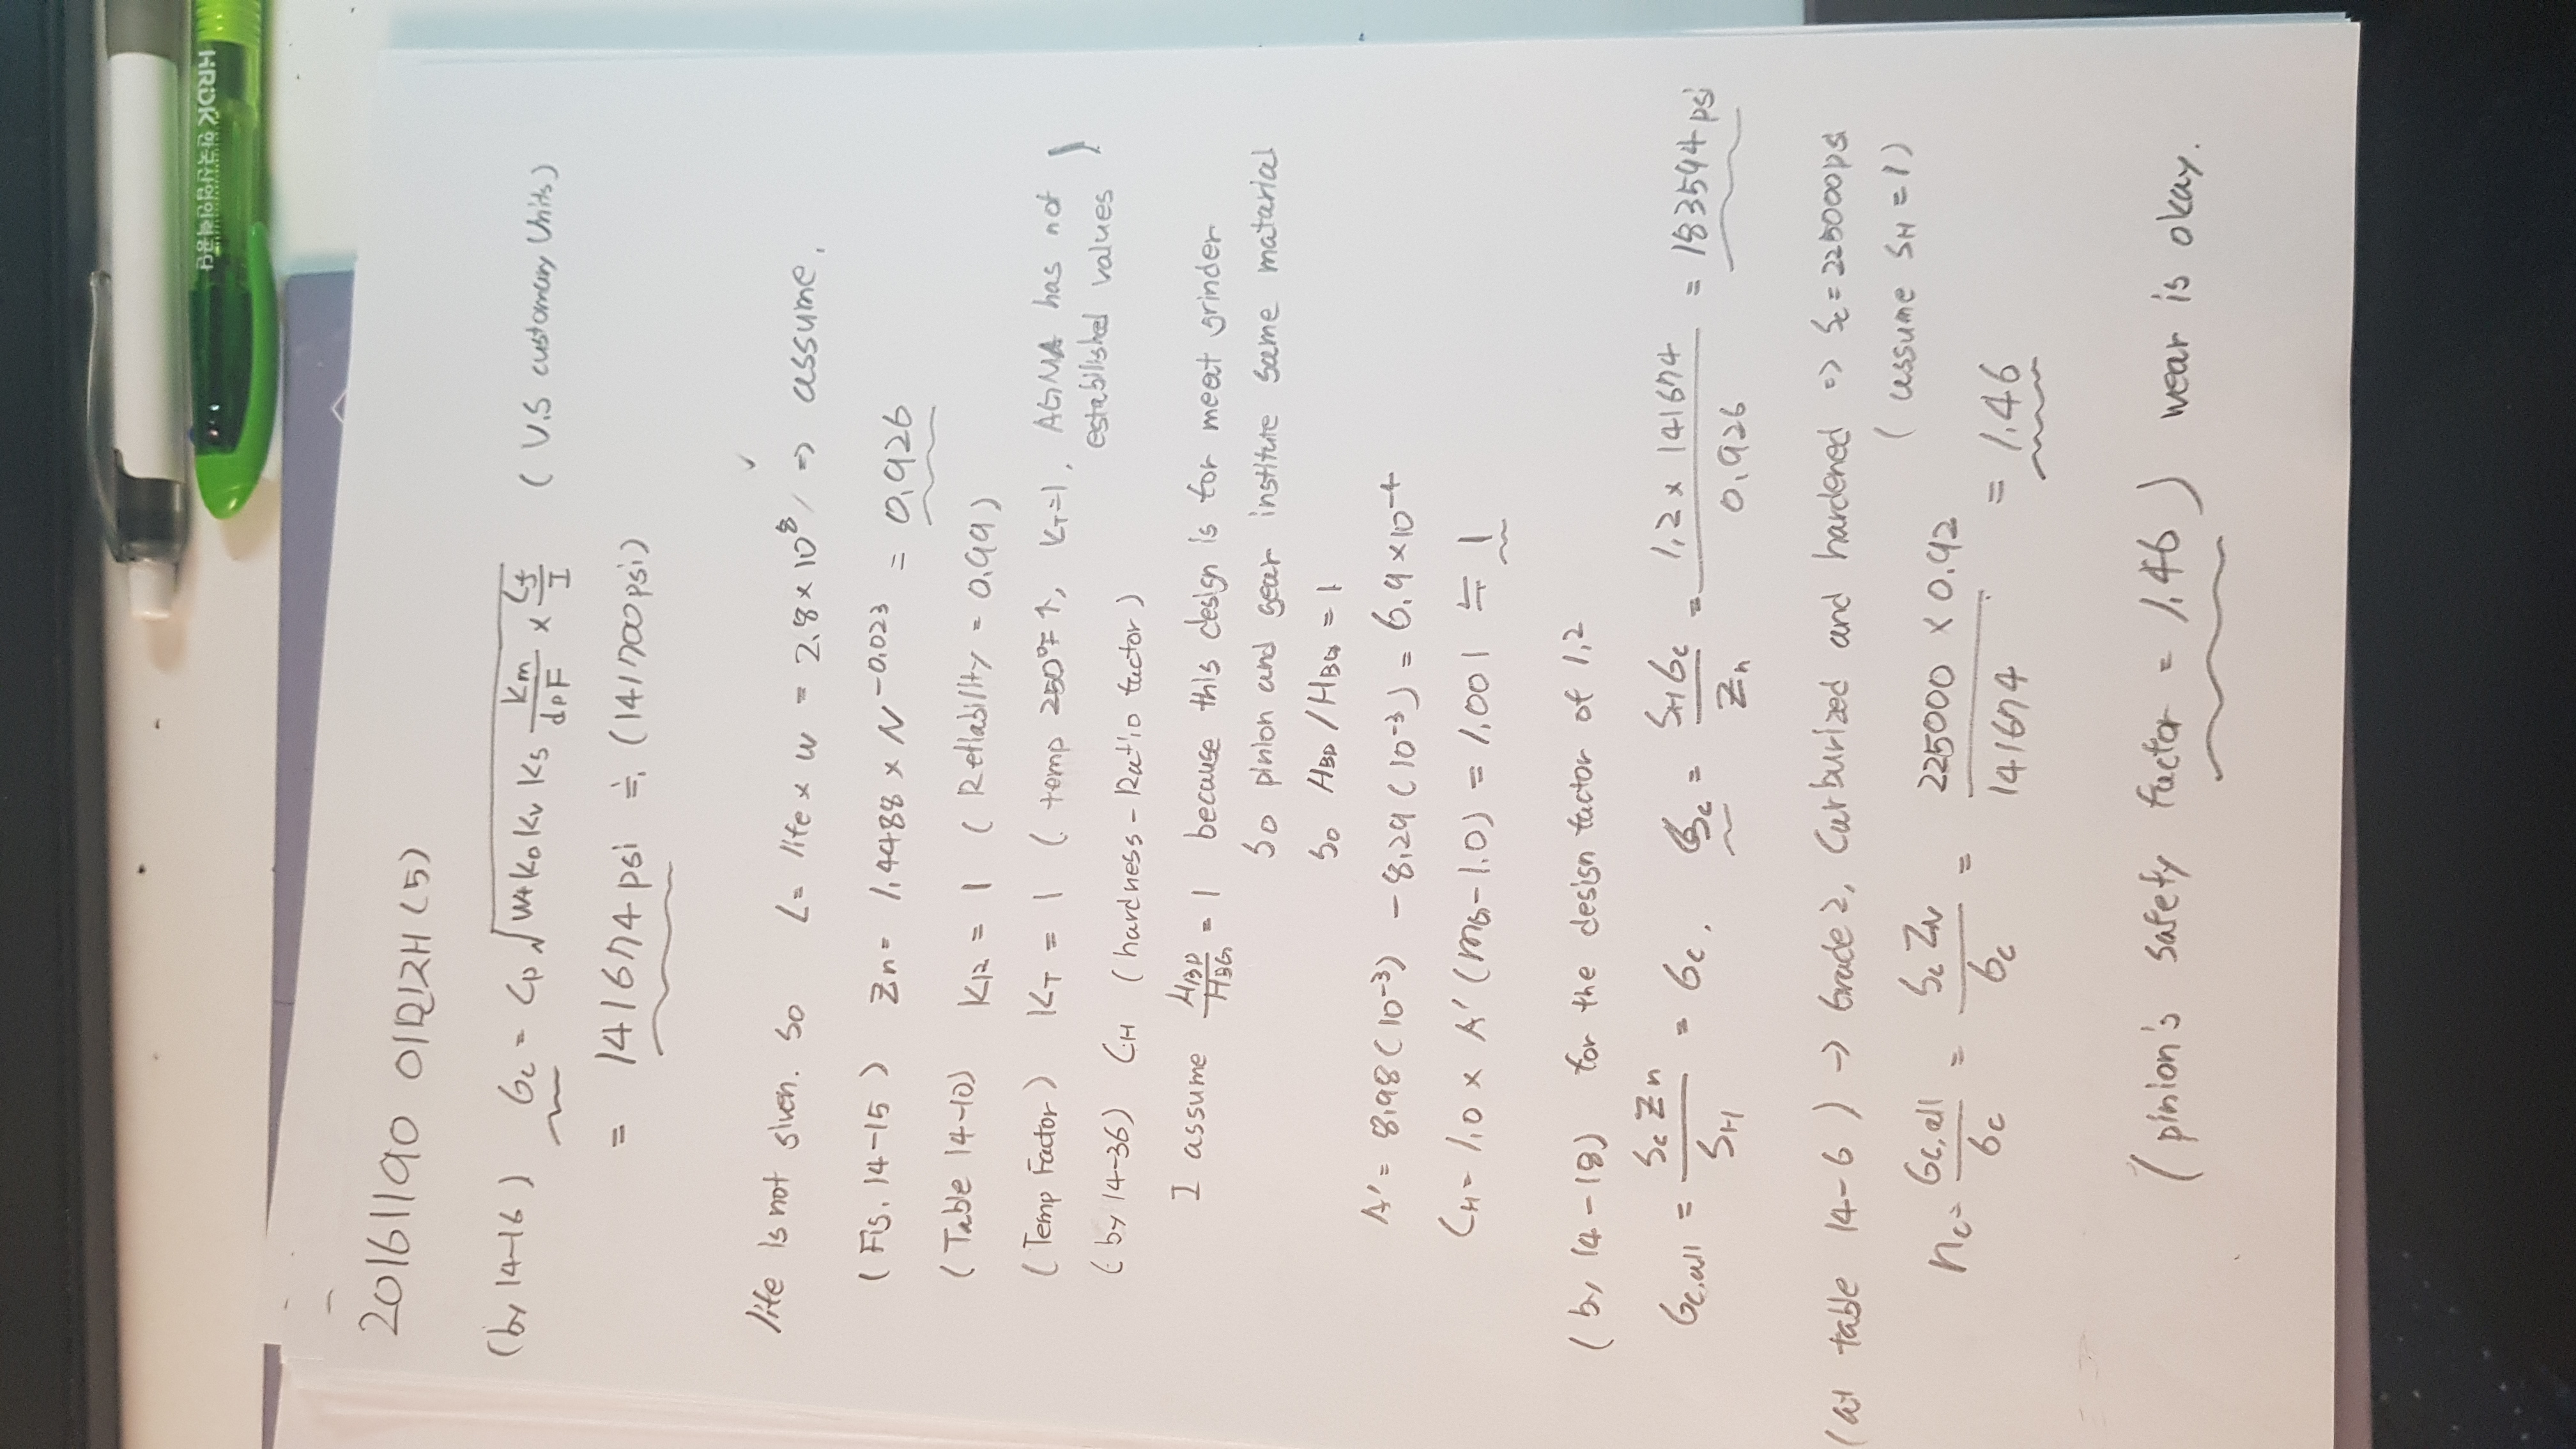 HRDK 한국산업인력공단
20161190 이민재 (5)
(by 14-16) σc = Cp √(Wt Ko Kv Ks Km/dpF × Cf/I) (U.S customary Units)
= 141674 psi ≒ (141700psi)
life is not given. So L = life × w = 2.8×10^8 ⇒ assume.
(Fig. 14-15) Zn = 1.4488 × N^-0.023 = 0.926
(Table 14-10) KR = 1 (Reliability = 0.99)
(Temp Factor) KT = 1 (temp 250°F ↑, KT=1, AGMA has not
established values)
(by 14-36) CH (hardness-Ratio factor)
I assume HBP/HBG = 1 because this design is for meat grinder
So pinion and gear institute same matarial
So HBP/HBG = 1
A' = 8.98(10^-3) - 8.29(10^-3) = 6.9×10^-4
CH = 1.0 × A' (mG-1.0) = 1.001 ≒ 1
(by 14-18) for the design factor of 1.2
σc,all = Sc Zn/SH = σc. Sc = SH σc/Zn = 1.2 × 141674/0.926 = 183594 psi
(at table 14-6) → Grade 2, Carburized and hardened ⇒ Sc = 225000psi
(assume SH = 1)
nc = σc,all/σc = Sc ZN/σc = 225000 × 0.92/141674 = 1.46
(pinion's safety factor = 1.46) wear is okay.